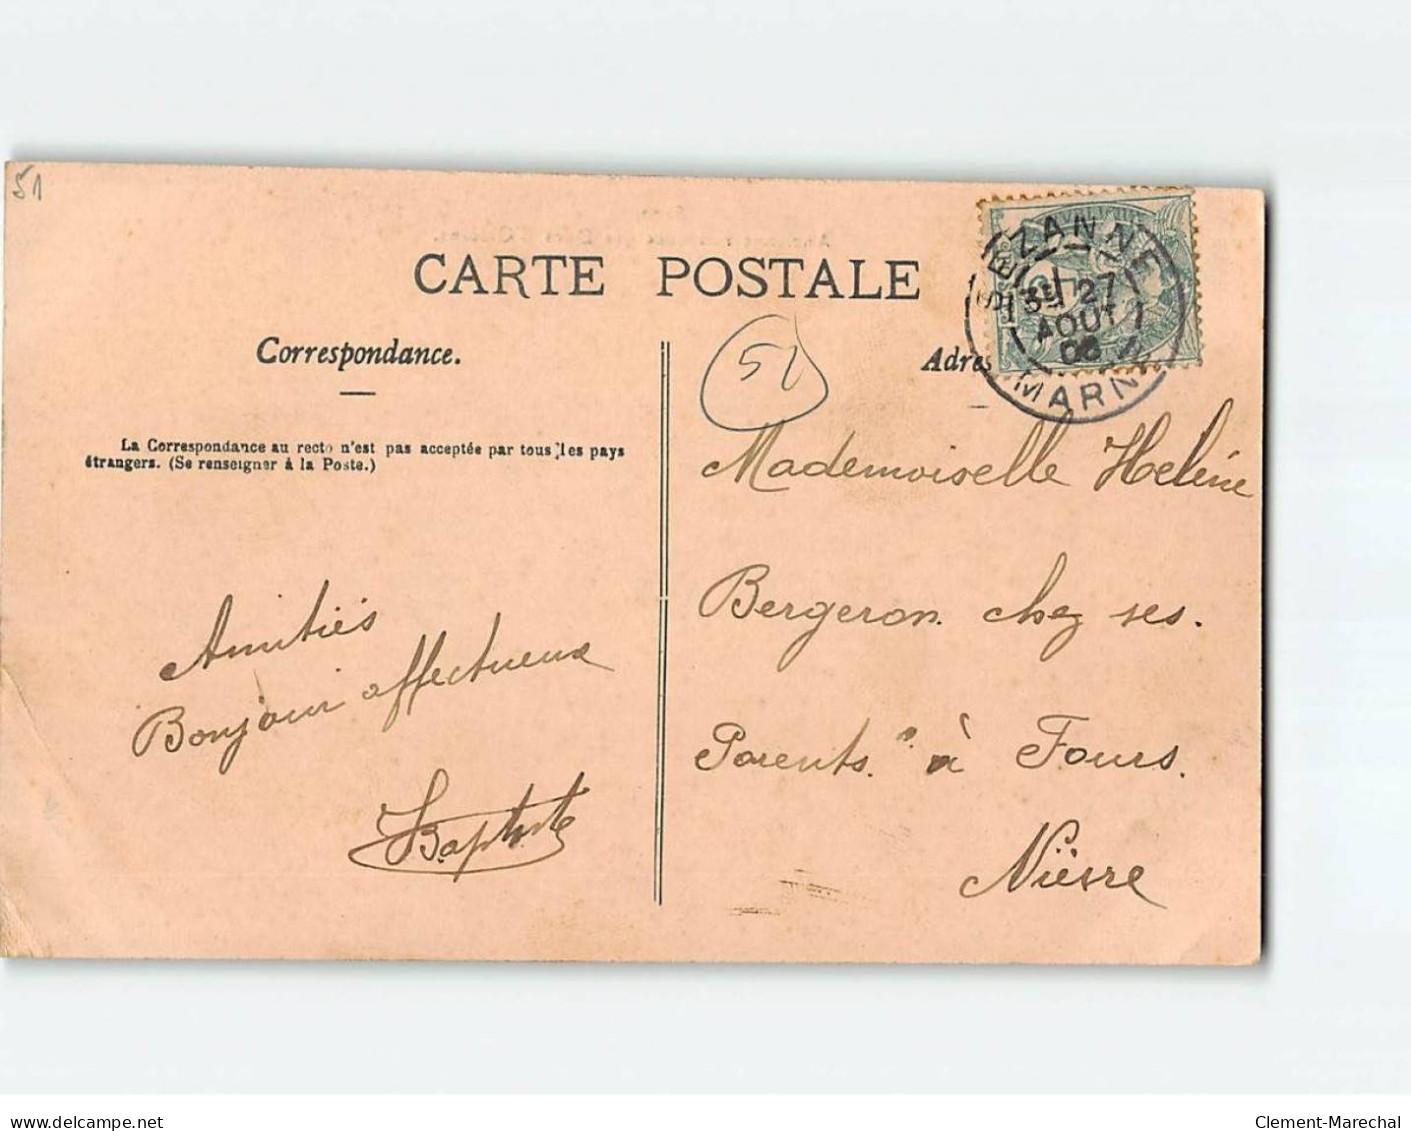 51
CARTE POSTALE
Correspondance.
La Correspondance au recto n'est pas acceptée par tous les pays
étrangers. (Se renseigner à la Poste.)
Amitiés
Bonjour affectueux
Baptiste
SEZANNE
27
AOUT
MARNE
51
Adres
Mademoiselle Heléne
Bergeron chez ses.
Parents. à Fours.
Nièvre
www.delcampe.net
Clement-Marechal